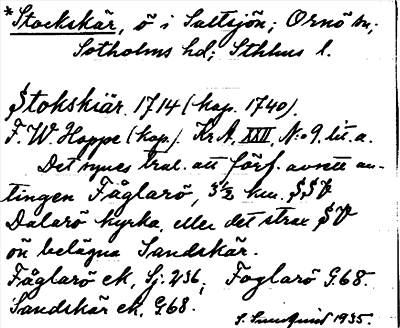 *Stockskär, ö i Saltsjön; Ornö sn;
Sotholms hd; Sthlms l.
Stokskiär 1714 (kop. 1740).
F. W. Hoppe (kop.) Kr A, XXII, No 9. lit. a.
Det synes tral. att förf. avsett an-
tingen Fåglarö, 3½ km. SSV
Dalarö kyrka, eller det strax SV
ön belägna Sandskär.
Fåglarö ek, Sj. 236; Foglarö G.68.
Sandskär ek, G68.
1935.